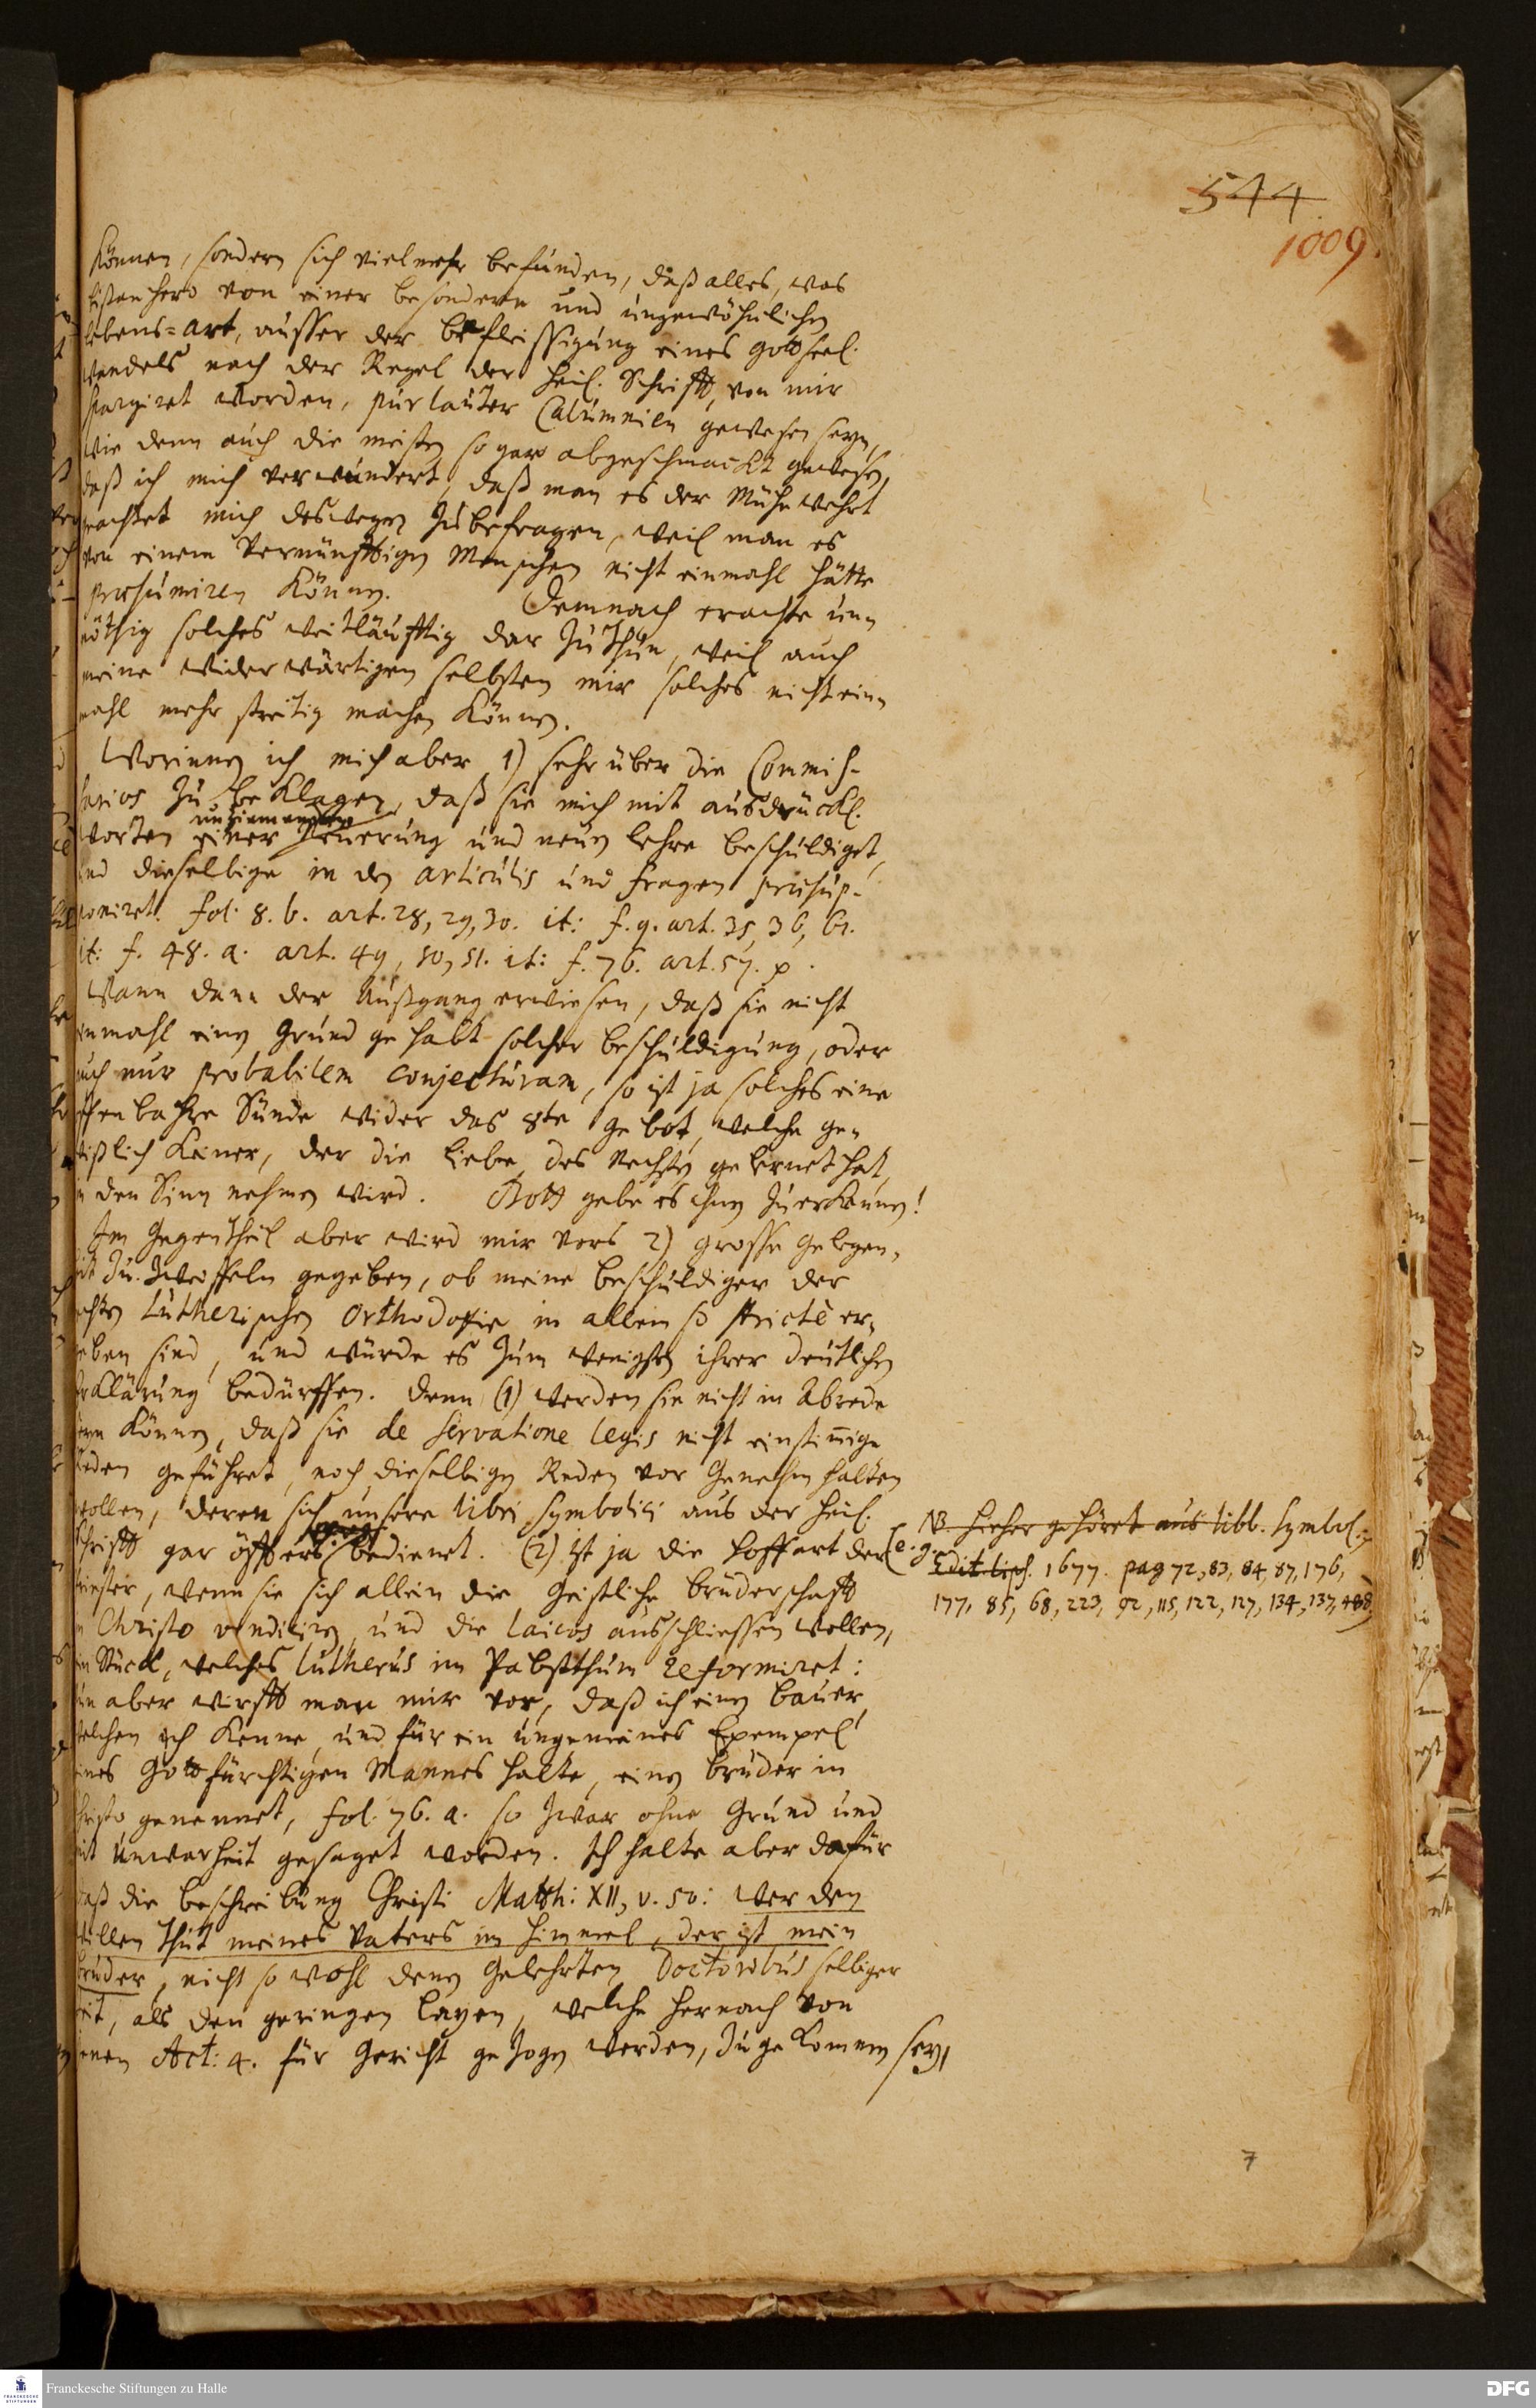 544
1009.
können, sondern sich vielmehr befunden, daß alles, was
bißanhero von einer besondern und ungewöhnlichen
lebens=art, ausser der befleissigung eines gottseel.
wandels nach der Regel der heil. Schrifft, von mir
spargiret worden, pur lauter Calumnien gewesen seyn,
wie denn auch die meisten so gar abgeschmackt gewesen,
daß ich mich verwundert, daß man es der Mühe wehrt
geachtet mich deswegen zubefragen, weil man es
von einem Vernünfftigen Menschen nicht einmahl hätte
præsumiren können. Demnach erachte un=
nöthig solches weitläufftig dar zuthun, weil auch
meine widerwärtigen selbsten mir solches nicht ein=
mahl mehr streitig machen können.
Worinnen ich mich aber 1) sehr über die Commis-
sarios zu beklagen, daß sie mich mit ausdrückl.
worten einer Neuerung und neuen lehre beschuldiget,
und dieselbige in den articulis und fragen præsup-
poniret. fol. 8. b. art. 28, 29, 30. it: f. 9. art. 35, 36, 61.
it: f. 48. a. art. 49, 50, 51. it: f. 76. art. 57. p.
Wann dann der Außgang erwiesen, daß sie nicht
einmahl einen Grund gehabt solcher beschuldigung, oder
auch nur probabilem conjecturam, so ist ja solches eine
offenbahre Sünde wider das 8te gebot, welche ge=
wißlich keiner, der die Liebe des Nechsten gelernet hat,
in den Sinn nehmen wird. Gott gebe es ihnen zuerkennen!
Im Gegentheil aber wird mir vors 2) grosse gelegen=
heit zu zweiffeln gegeben, ob meine beschuldiger der
echten Lutherischen Orthodoxie in allem so strictè er=
geben sind, und würde es zum wenigsten ihrer deutlichen
erklärung bedürffen. Denn (1) werden sie nicht in Abrede
seyn können, daß sie de servatione legis nicht einstimmige
Reden geführet, noch dieselbigen Reden vor genehm halten
wollen, deren sich unsere libri symbolici aus der heil.
Schrifft gar öffters bedienet. (2) ist ja die hoffart der
Priester, wenn sie sich allein die geistliche bruderschafft
in Christo vindiciren, und die laicos ausschliessen wollen,
ein Stück, welches Lutherus im Pabstthum reformiret:
Nun aber wirfft man mir vor, daß ich einen bauer,
welchen ich kenne, und für ein ungemeines Exempel
eines Gottfürchtigen Mannes halte, einen bruder in
Christo genennet, fol. 76. a. so zwar ohne Grund und
mit unwarheit gesaget worden. Ich halte aber dafür
daß die beschreibung Christi Matth: XII, v. 50: Wer den
willen thut meines Vaters im himmel, der ist mein
bruder, nicht so wohl denen Gelehrten Doctoribus selbiger
Zeit, als den geringen Layen, welche hernach von
ihnen Act: 4. für Gericht gezogen werden, zugekommen sey,
NB. hieher gehöret aus libb. symbol.
e. g. Edit. Lips. 1677. pag 72, 83, 84, 87, 176,
177, 85, 68, 223, 92, 115, 122, 127, 134, 137, 488
7
Franckesche Stiftungen zu Halle
DFG